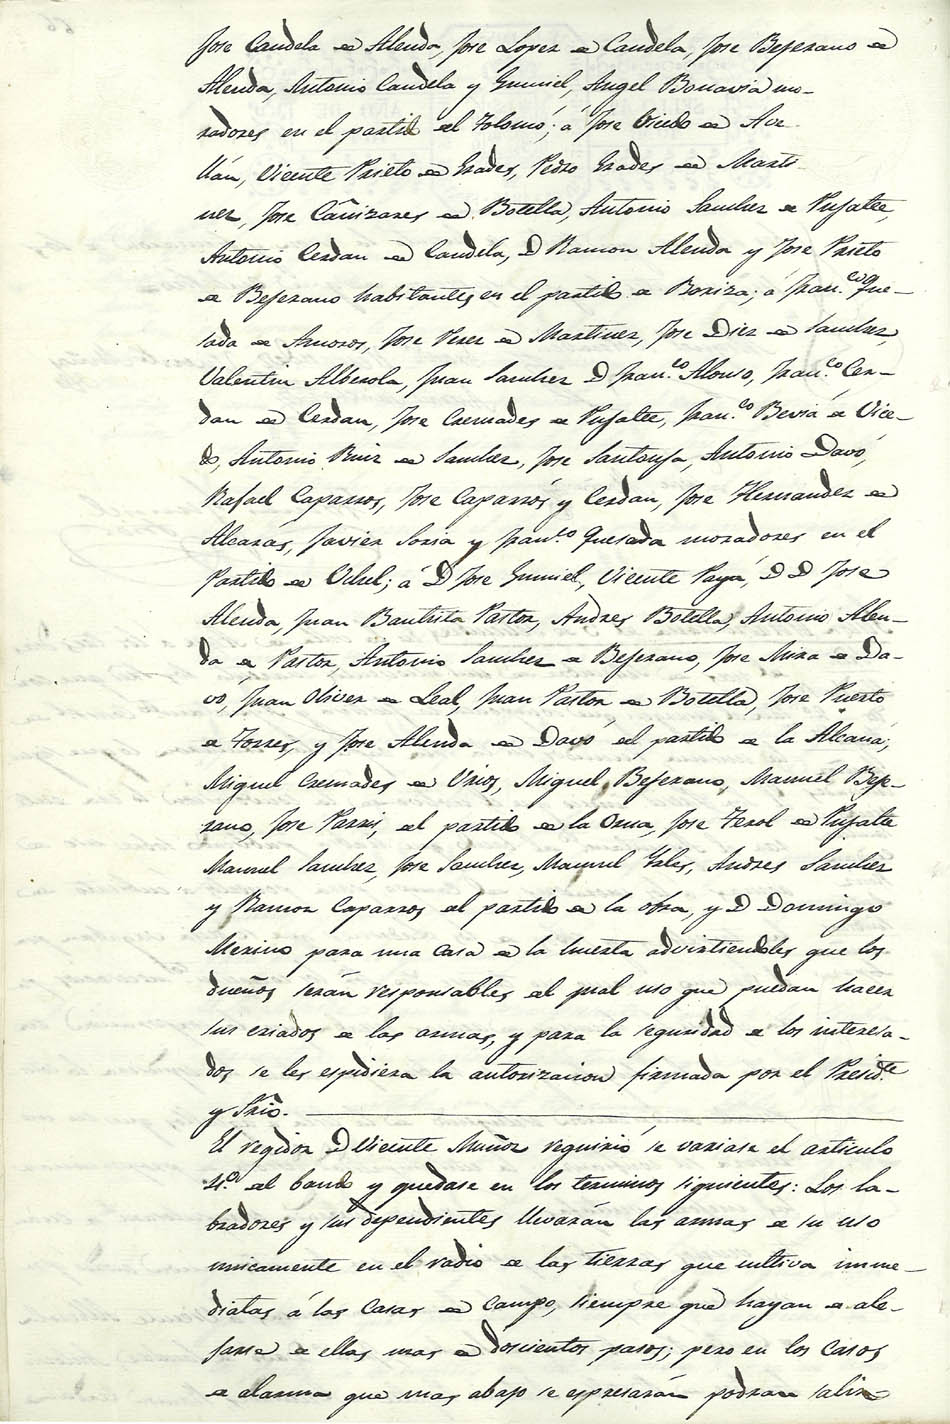 Jose Candela de Alenda, Jose Lopez de Candela, Jose Bejerano de
Alenda, Antonio Candela y Gumiel, Angel Bonavia mo-
radores en el partido del Tolomó; á Jose Vicedo de Ave
llán, Vicente Prieto de Grades, Pedro Grades de Marti
nez, Jose Cañizares de Botella, Antonio Sanchez de Pujalte,
Antonio Cerdan de Candela, D Ramon Alenda y Jose Prieto
de Bejerano habitantes en el partido de Boriza; á Fran.co Que-
sada de Amoros, Jose Perez de Martinez, Jose Diez de Sanchez,
Valentin Alberola, Juan Sanchez D Fran.co Alonso, Fran.co Cer-
dan de Cerdan, Jose Cremades de Pujalte, Fran.co Beviá de Vice-
do, Antonio Ruiz de Sanchez, Jose Santonja, Antonio Davó,
Rafael Caparros, Jose Caparrós y Cerdan, Jose Hernandez de
Alcarás, Javier Soria y Fran.co Quesada moradores en el
Partido de Uchel; á D Jose Gumiel, Vicente Payá, D D Jose
Alenda, Juan Bautista Pastor, Andres Botella, Antonio Alen-
da de Pastor, Antonio Sanchez de Bejerano, Jose Mira de Da-
vó, Juan Oliver de Leal, Juan Pastor de Botella, Jose Puerto
de Torres, y Jose Alenda de Davó del partido de la Alcaná;
Miguel Cremades de Urios, Miguel Bejerano, Manuel Beje-
rano, Jose Parris, del partido de la Orna, Jose Terol de Pujalte
Manuel Sanchez, Jose Sanchez, Manuel Yales, Andres Sanchez
y Ramon Caparros del partido de la obra, y D Domingo
Merino para una casa de la huerta advirtiendoles que los
dueños serán responsables del mal uso que puedan hacer
sus criados de las armas, y para la seguridad de los interesa-
dos se les espidiera la autorizacion firmada por el Presid.te
y Srio.
El regidor D Vicente Muñoz requirió se variase el articulo
4.o del bando y quedase en los terminos siguientes: Los la-
bradores y sus dependientes llevarán las armas de su uso
unicamente en el radio de las tierras que cultiva inme-
diatas á las Casas de campo, siempre que hayan de ale-
jarse de ellas mas de doscientos pasos; pero en los casos
de alarma que mas abajo se espresarán podran salir